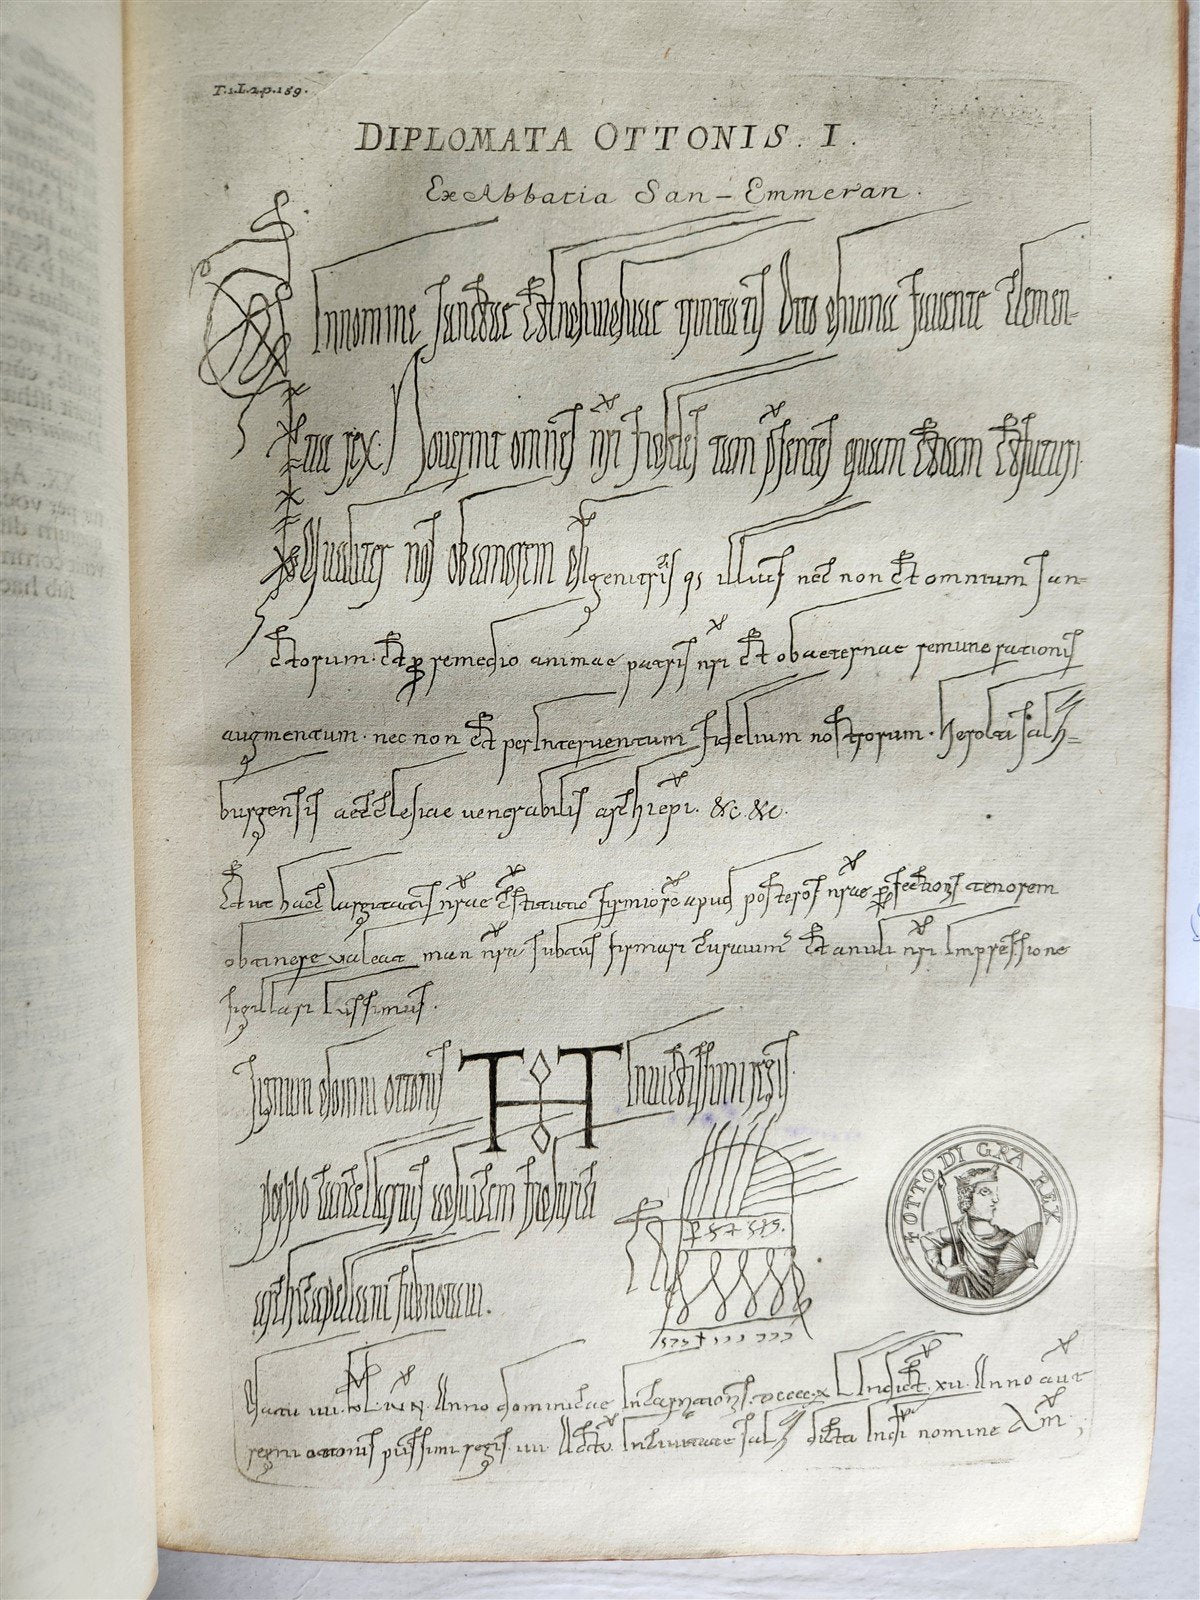 T.1.L.2.p.159.
DIPLOMATA OTTONIS. I.
Ex Abbatia San-Emmeran.
In nomine sanctae et individuae trinitatis Otto divina favente clemen-
tia rex. Noverint omnes nri fideles tam psentes quam etiam et futuri
Qualiter nos ob amorem di genitricis illius nec non et omnium san-
ctorum. et p remedio animae patris nri et ob aeternae remunerationis
augmentum. nec non et per interventum fidelium nostrorum. herolti salz-
burgensis aecclesiae venerabilis archiepi. &c. &c.
Et ut haec largitatis nrae cstitutio firmiore apud posteros nrae pfectionis tenorem
obtinere valeat man nra subtus firmari curavim et anuli nri impressione
sigillari iussimus.
signum domni ottonis
invictissimi regis.
poppo cancellarius ad vicem
archicapellani subnotavi.
OTTO DI GRA REX
Anno dominicae incarnationis. dcccc. xl indict. xii. Anno aut
regni ottonis piissimi regis. iiii Actu in civitate salz dicta nomine Am;